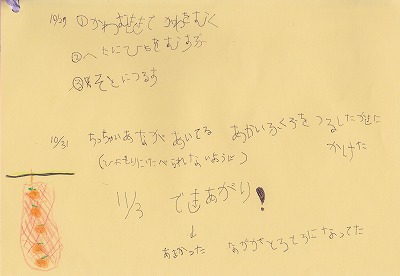 10/29 ①かわむききで かわをむく
②へたにひもをむすぶ
③そとにつるす
10/31 ちっちゃいあながあいてる あかいふくろをつるしたかきに
(ひよどりにたべられないように) かけた
11/3 できあがり!
↓
あまかった なかがとろとろになってた